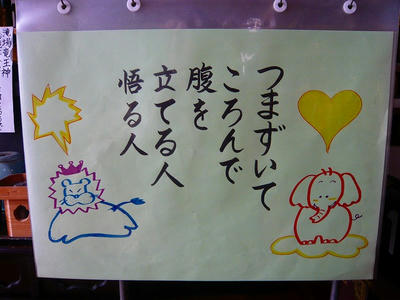 つまずいて
ころんで
腹を
立てる人
悟る人
滝場竜王神